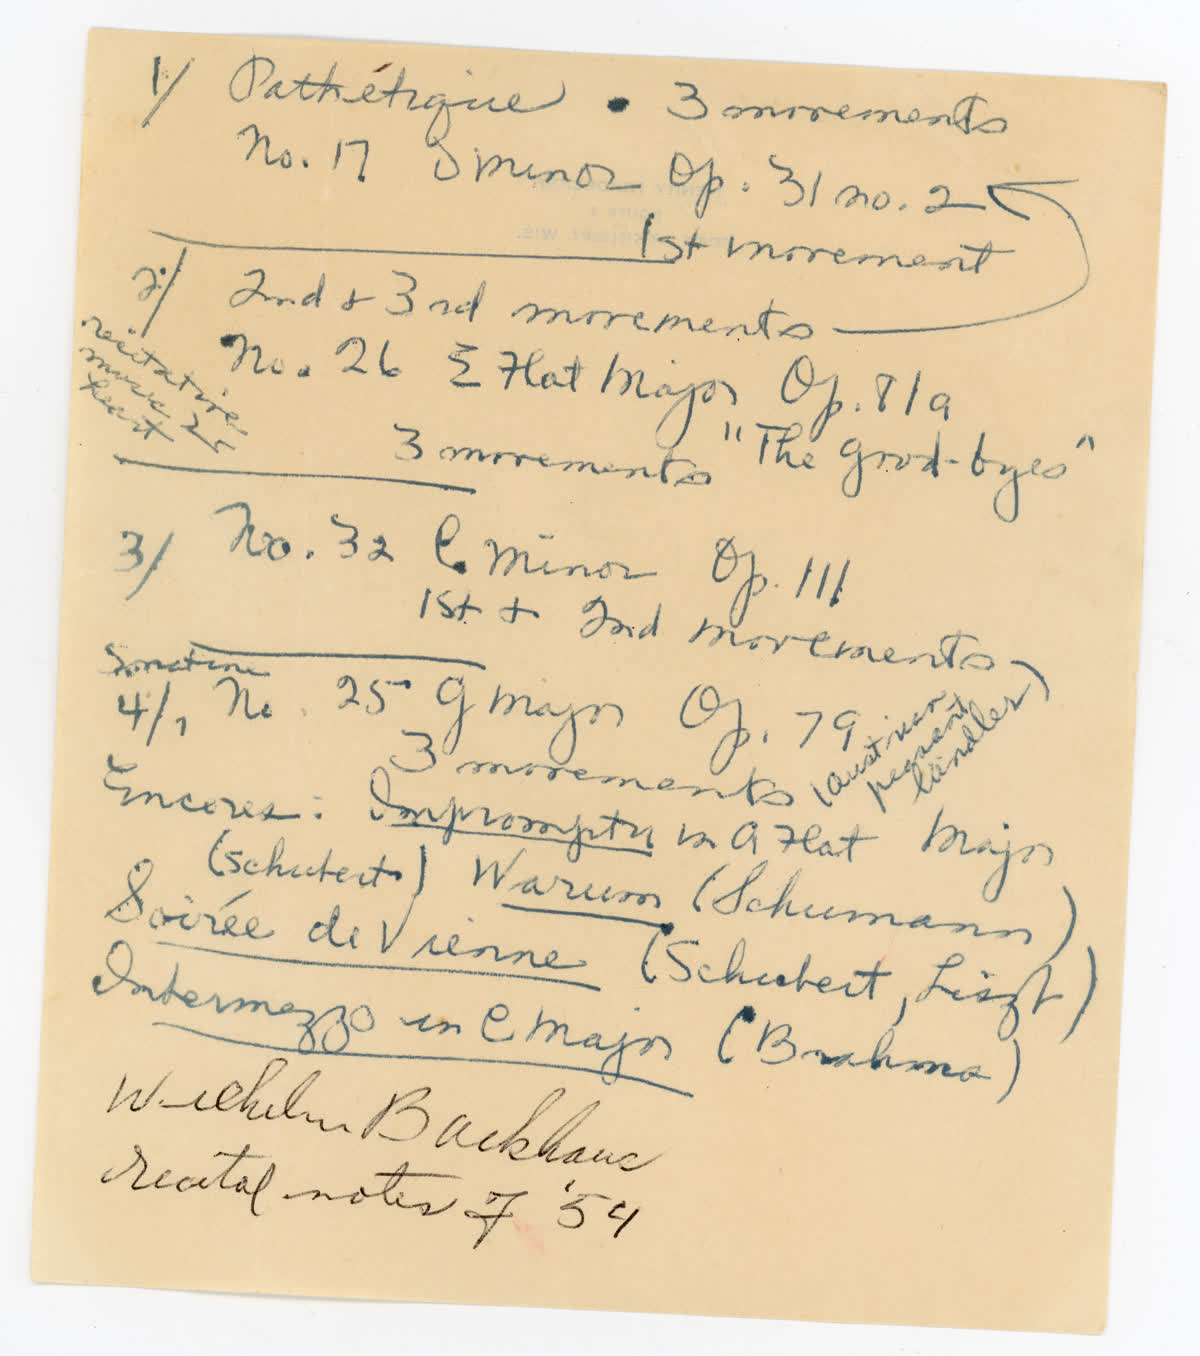 1/ Pathétique • 3 movements
No. 17 D minor Op. 31 no. 2
1st movement
2/ 2nd & 3rd movements
No. 26 E Flat Major Op. 81a
recitative
heart
3 movements "The good-byes"
3/ No. 32 C Minor Op. 111
1st + 2nd movements
Sonatine
4/, No. 25 G Major Op. 79
3 movements (Austrian
peasant
ländler)
Encores: Impromptu in A Flat Major
(Schubert) Warum (Schumann)
Soirée de Vienne (Schubert, Liszt)
Intermezzo in C Major (Brahms)
Wilhelm Backhaus
recital notes of '54